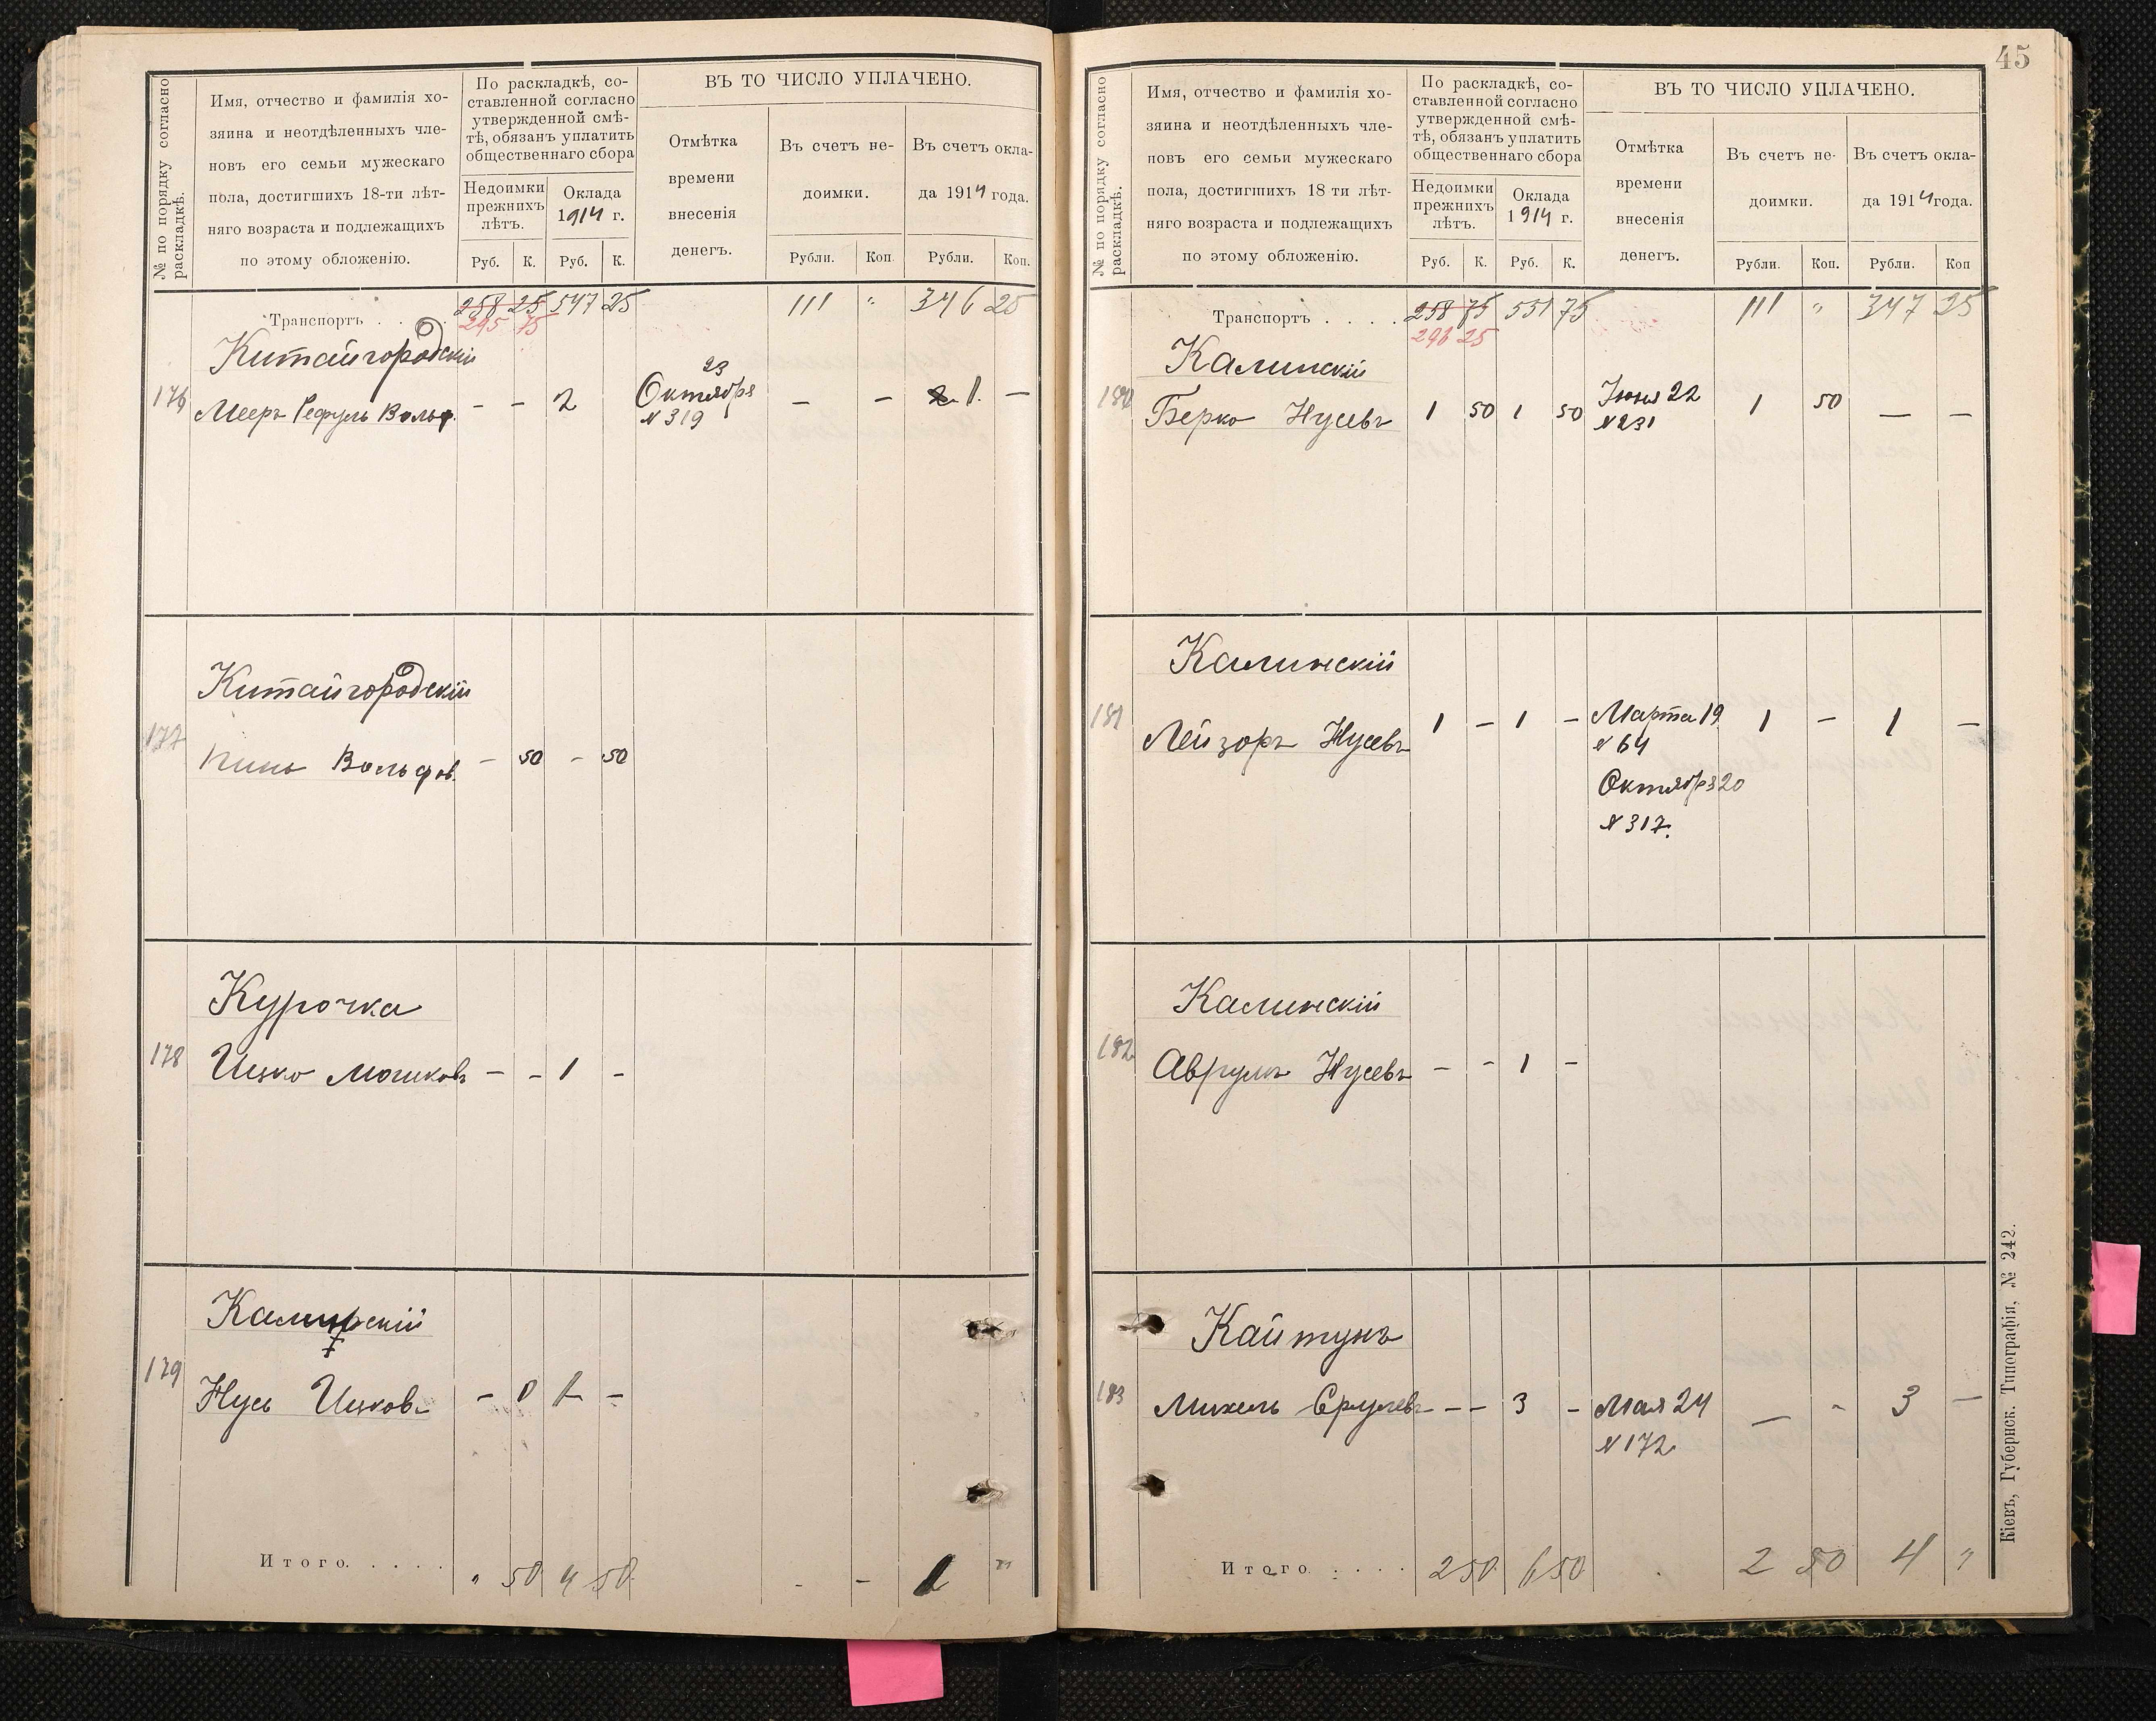 45
№ по порядку согласно раскладкѣ.
Имя, отчество и фамилія хо-
зяина и неотдѣленныхъ чле-
новъ его семьи мужескаго
пола, достигшихъ 18-ти лѣт-
няго возраста и подлежащихъ
по этому обложенію.
По раскладкѣ, со-
ставленной согласно
утвержденной смѣ-
тѣ, обязанъ уплатить
общественнаго сбора
Недоимки
прежнихъ
лѣтъ.
Оклада
1914 г.
Руб. К. Руб. К.
ВЪ ТО ЧИСЛО УПЛАЧЕНО.
Отмѣтка
времени
внесенія
денегъ.
Въ счетъ не-
доимки.
Въ счетъ окла-
да 1914 года.
Рубли. Коп. Рубли. Коп.
Транспортъ . . . . 258 25 547 25 111 " 346 25
295 75
Китайгородскій
23
176 Мееръ Рефуль Вольф. - - 2 Октября - - 2 1 -
N 319
Китайгородскій
177 Пинь Вольфов. - 50 - 50
Курочка
178 Ицко Мошковъ - - 1 -
Калинскій
179 Нусь Ицковъ - 0 1 -
Итого. . . . . " 50 4 50 - - 1 "
№ по порядку согласно раскладкѣ.
Имя, отчество и фамилія хо-
зяина и неотдѣленныхъ чле-
новъ его семьи мужескаго
пола, достигшихъ 18 ти лѣт-
няго возраста и подлежащихъ
по этому обложенію.
По раскладкѣ, со-
ставленной согласно
утвержденной смѣ-
тѣ, обязанъ уплатить
общественнаго сбора
Недоимки
прежнихъ
лѣтъ.
Оклада
1914 г.
Руб. К. Руб. К.
ВЪ ТО ЧИСЛО УПЛАЧЕНО.
Отмѣтка
времени
внесенія
денегъ.
Въ счетъ не-
доимки.
Въ счетъ окла-
да 1914 года.
Рубли. Коп. Рубли. Коп
Транспортъ . . . . 258 75 551 75 111 " 347 25
296 25
Калинскій
180 Берко Нусевъ 1 50 1 50 Іюня 22 1 50 - -
N 231
Калинскій
181 Лейзоръ Нусевъ 1 - 1 - Марта 19 1 - 1 -
N 64
Октября 20
N 317.
Калинскій
182 Аврумъ Нусевъ - - 1 -
Кайтунъ
183 Михель Срулевъ - - 3 - Мая 24 - - 3 -
N 172
Итого . . . . 2 50 6 50 2 50 4 "
Кіевъ, Губернск. Типографія, № 242.